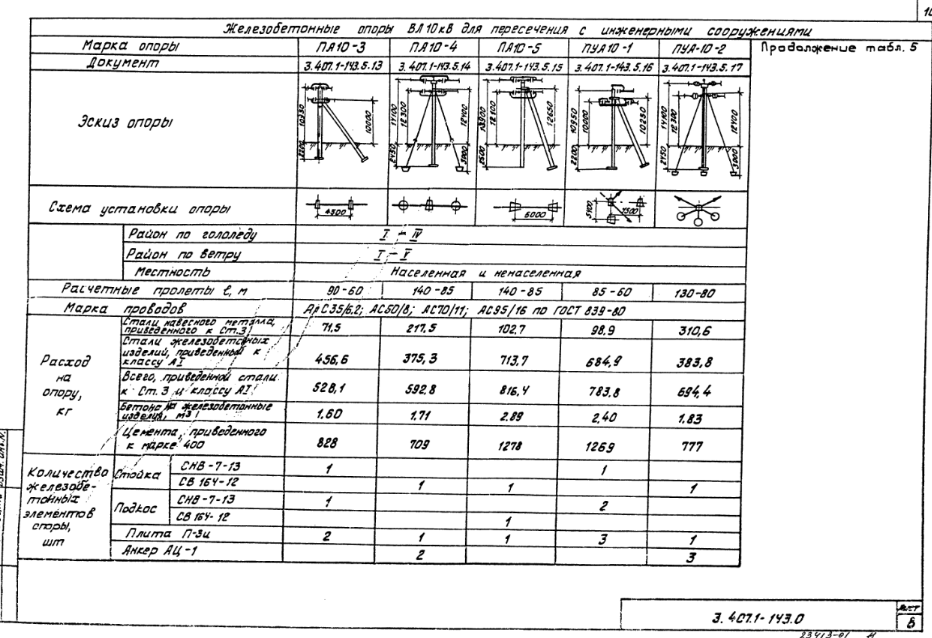 Железобетонные опоры ВЛ 10 кВ для пересечения с инженерными сооружениями
Марка опоры ПА10-3 ПА10-4 ПА10-5 ПУА10-1 ПУА-10-2 Продолжение табл. 5
Документ 3.407.1-143.5.13 3.407.1-143.5.14 3.407.1-143.5.15 3.407.1-143.5.16 3.407.1-143.5.17
Эскиз опоры
10000 12300 12400 12650 10000 10250 12300 12400
2450 3000 2200 2450 3000
Схема установки опоры 4500 6000
Район по гололеду I - IV
Район по ветру I - V
Местность Населенная и ненаселенная
Расчетные пролеты ℓ, м 90-60 140-85 140-85 85-60 130-80
Марка проводов АпС35/6,2; АС50/8; АС70/11; АС95/16 по ГОСТ 839-80
Расход на опору, кг
Стали навесного металла, приведенного к Ст.3 71,5 217,5 102,7 98,9 310,6
Стали железобетонных изделий, приведенной к классу АI 456,6 375,3 713,7 684,9 383,8
Всего, приведенной стали к Ст. 3 и классу АI 528,1 592,8 816,4 783,8 694,4
Бетона на железобетонные изделия, м3 1.60 1.71 2.89 2,40 1.83
Цемента, приведенного к марке 400 828 709 1278 1269 777
Количество железобетонных элементов опоры, шт
Стойка СНВ-7-13 1 1
СВ 164-12 1 1 1
Подкос СНВ-7-13 1 2
СВ 164-12 1
Плита П-3и 2 1 1 3 1
Анкер АЦ-1 2 3
3.407.1-143.0
Лист
8
23413-01